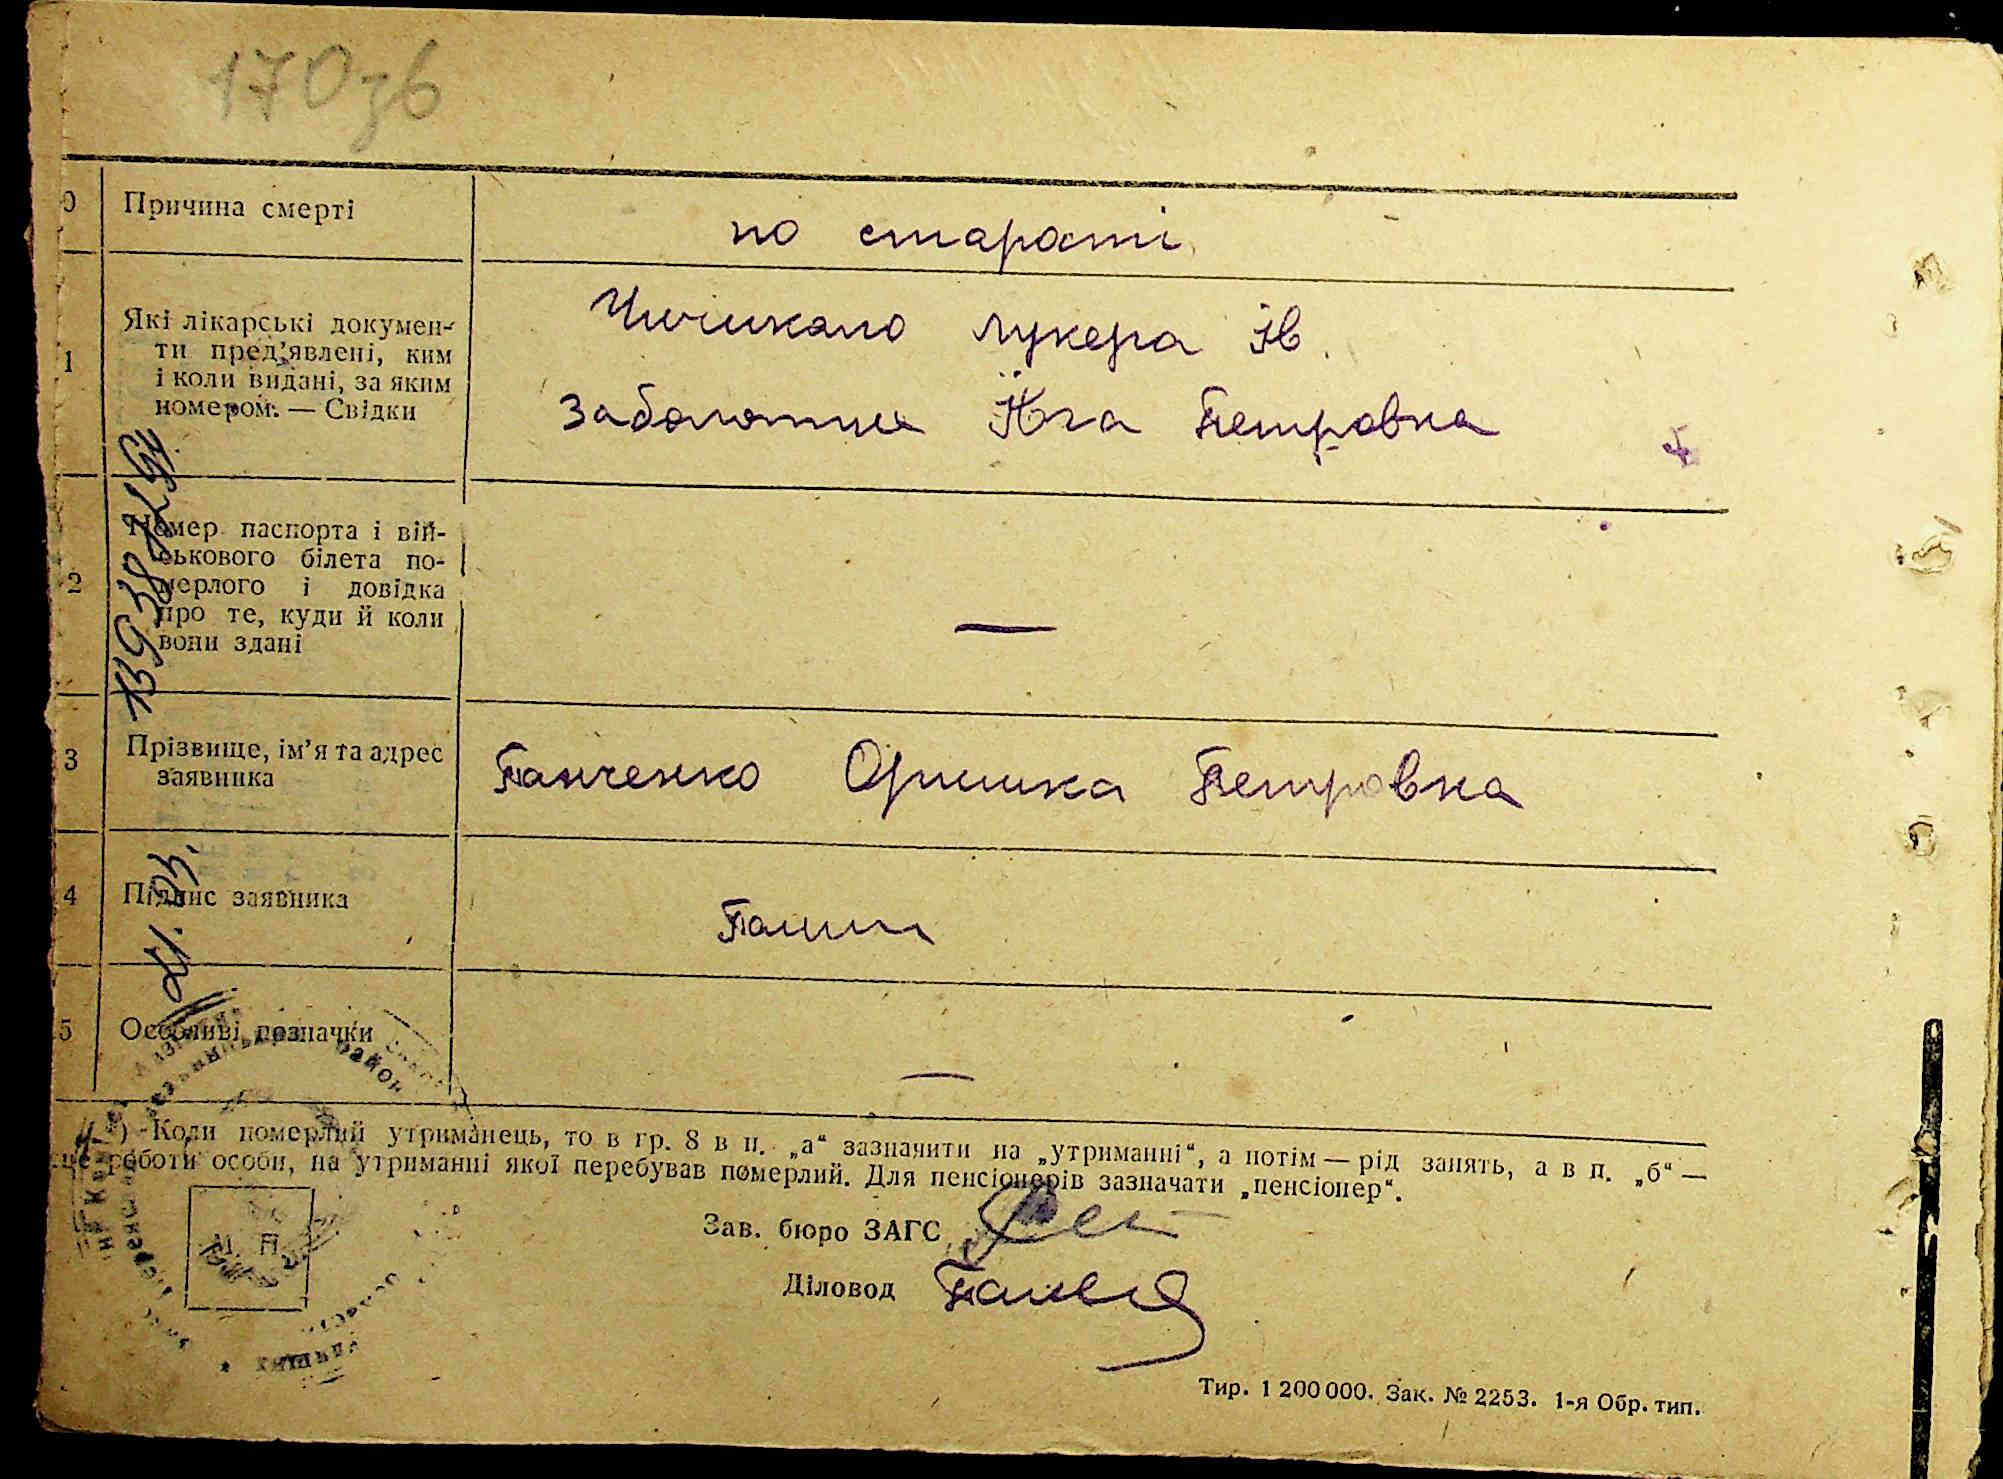 170зв
0 Причина смерті
по старати
1 Які лікарські докумен-
ти пред'явлені, ким
і коли видані, за яким
номером. — Свідки
Чичикало лукера Ів.
Заболотня Юга Петровна
2 Номер паспорта і вій-
ськового білета по-
мерлого і довідка
про те, куди й коли
вони здані
—
3 Прізвище, ім'я та адрес
заявника
Панченко Оришка Петровна
4 Підпис заявника
5 Особливі позначки
—
) Коли померлий утриманець, то в гр. 8 в п. „а“ зазначити на „утриманні“, а потім — рід занять, а в п. „б“ —
це роботи особи, на утриманні якої перебував померлий. Для пенсіонерів зазначати „пенсіонер“.
Зав. бюро ЗАГС
Діловод
Тир. 1 200 000. Зак. № 2253. 1-я Обр. тип.
район